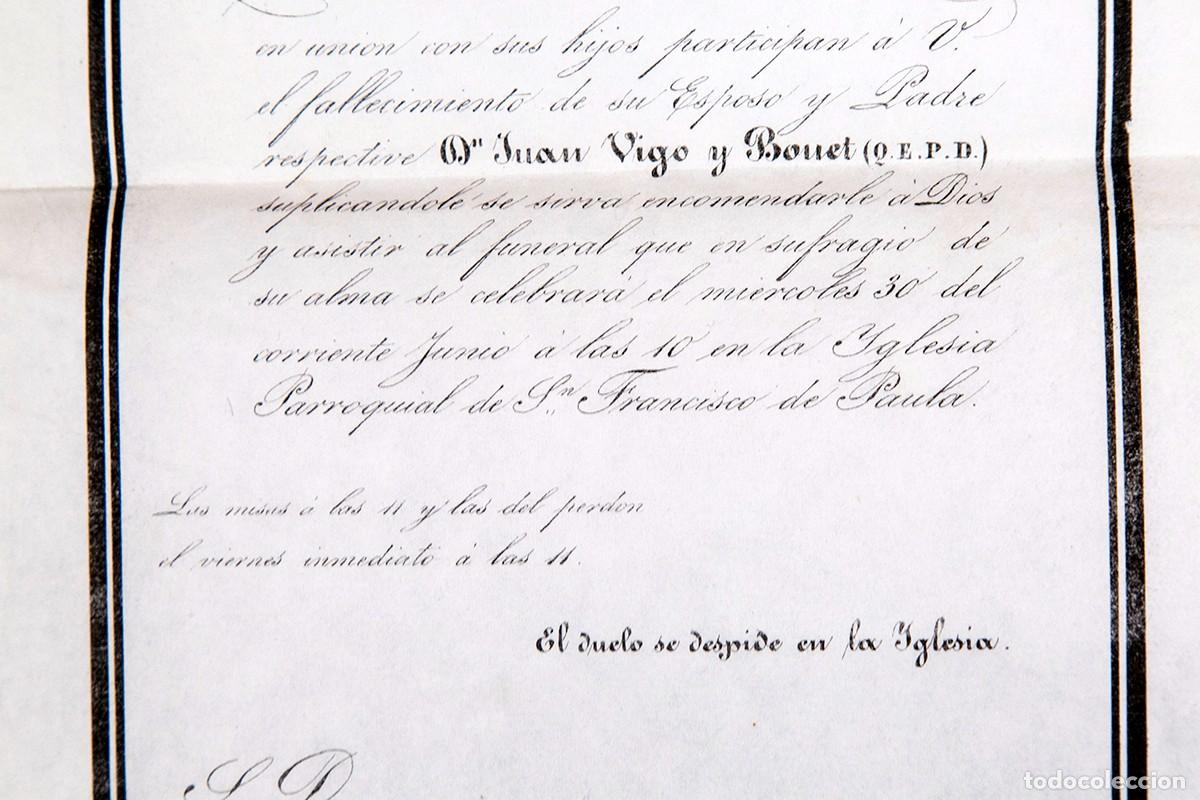 en union con sus hijos participan á V.
el fallecimiento de su Esposo y Padre
respective Dn Juan Vigo y Bouet (Q.E.P.D.)
suplicandole se sirva encomendarle á Dios
y asistir al funeral que en sufragio de
su alma se celebrará el miercoles 30 del
corriente Junio á las 10 en la Yglesia
Parroquial de Sn. Francisco de Paula.
Las misas á las 11 y las del perdon
el viernes inmediato á las 11.
El duelo se despide en la Yglesia.
S. D.
todocoleccion